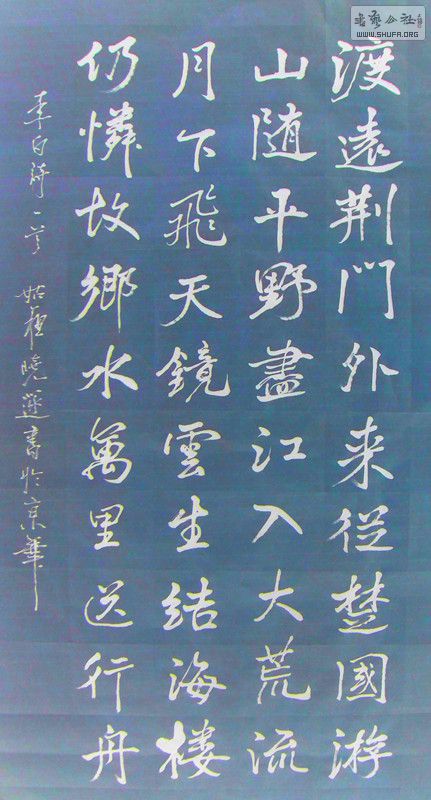 渡遠荆門外来従楚國游
山随平野盡江入大荒流
月下飛天鏡雲生結海樓
仍憐故鄉水萬里送行舟
李白詩一首 姑蘇曉蓮書於京華
書藝公社
WWW.SHUFA.ORG